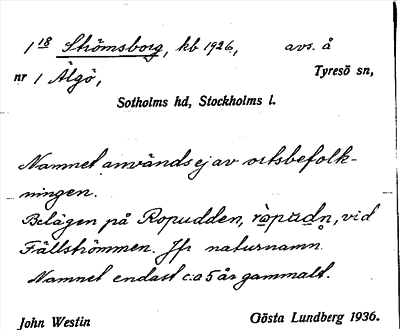 1 18 Strömsborg, kb 1926, avs. å
nr 1 Älgö, Tyresö sn,
Sotholms hd, Stockholms l.
Namnet används ej av ortsbefolk-
ningen.
Belägen på Ropudden, ròpudn̥, vid
Fällströmmen. Jfr naturnamn.
Namnet endast c:a 5 år gammalt.
John Westin Gösta Lundberg 1936.